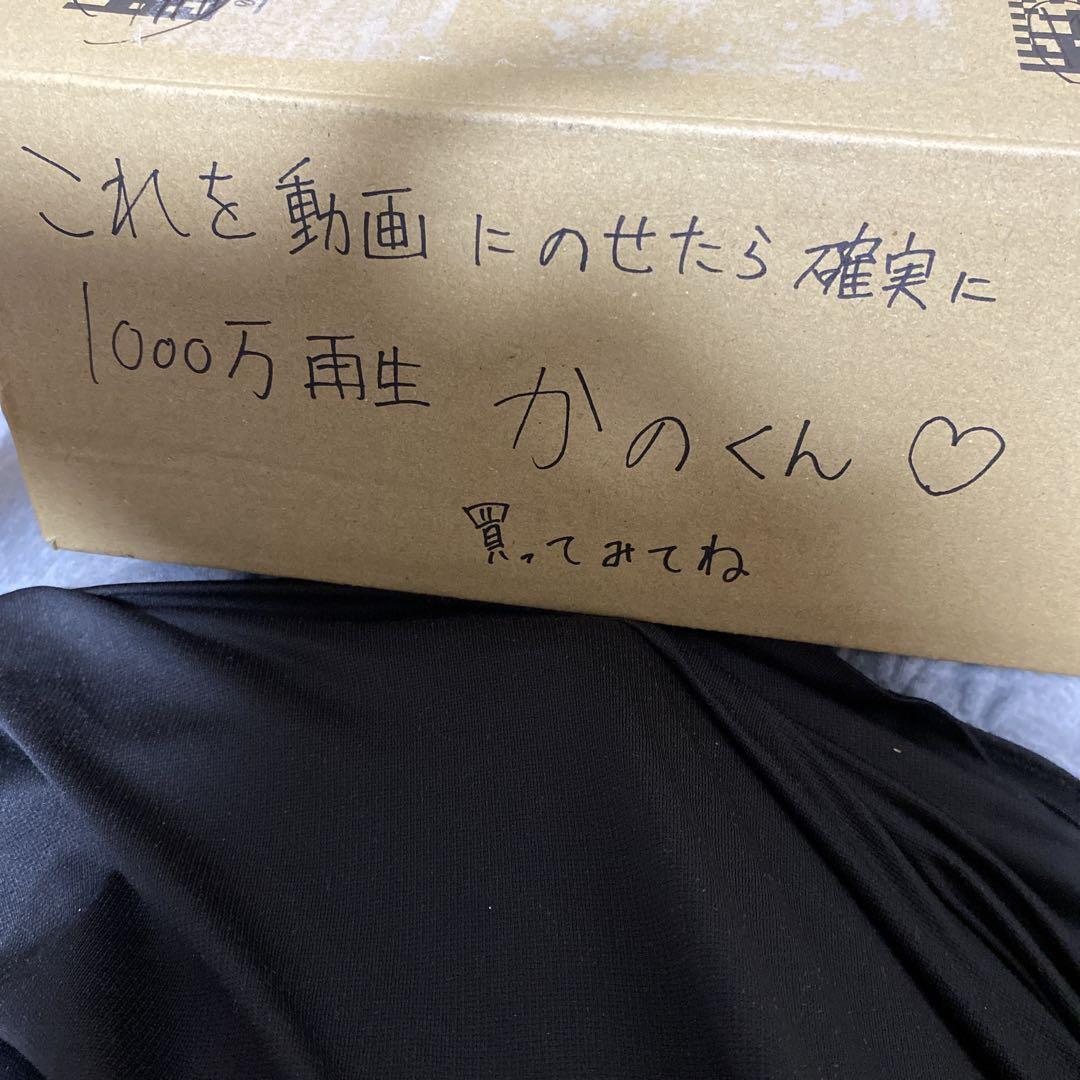 これを動画にのせたら確実に
1000万再生 かのくん♡
買ってみてね